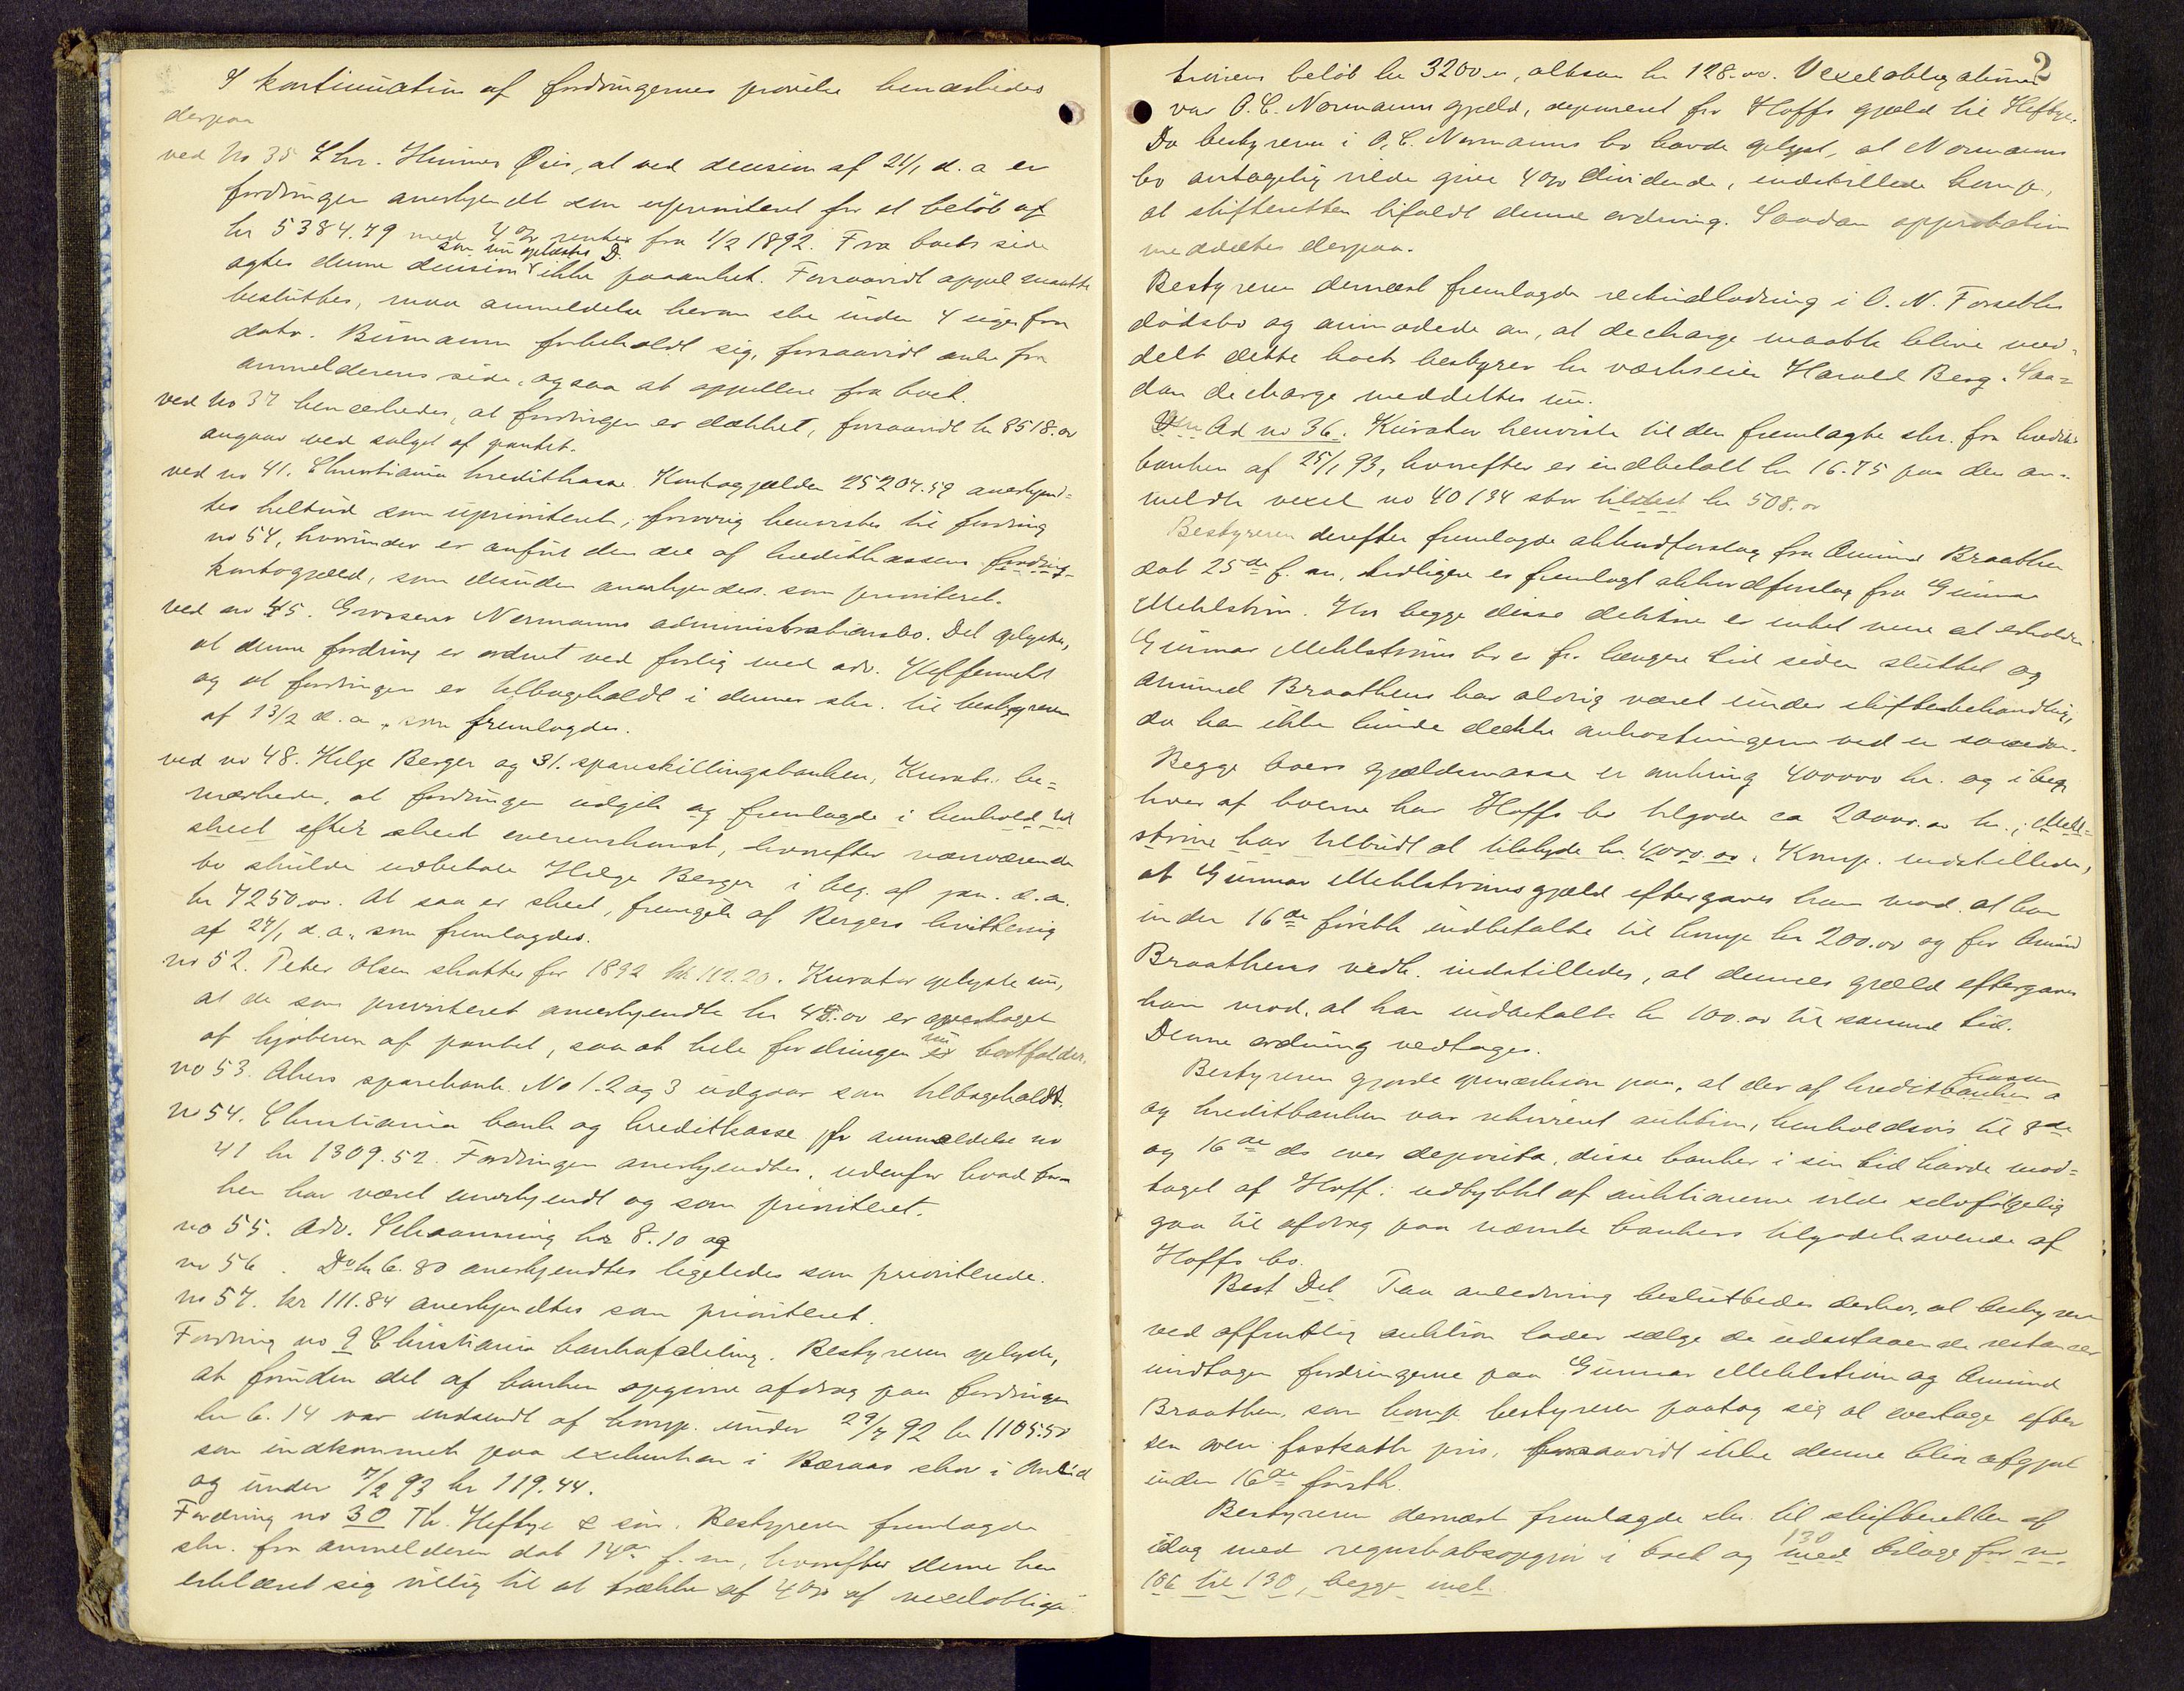 I kontinuation af fordringernes prøvelse bemærkedes
derpaa
ved No 35 Chr. Hinnes Øier, at ved decision af 21/1 d. a er
fordringen anerkjendt som uprioriteret for et beløb af
kr 5384.49 med 4% renter fra 1/2 1892. Fra boets side
som nu oplæstes D.
agtes denne decision ikke paaanket. Forsaavidt appel maatte
besluttes, maa anmeldelse herom ske inden 4 uger fra
dato. Bümann forbeholdt sig, forsaavidt anke fra
anmelderens side, ogsaa at appellere fra boet.
ved No 37 bemærkedes, at fordringen er dækket, forsaavidt kr 8518.00
angaar ved salget af pantet.
ved no 41. Christiania kreditkasse. Kontogjælden 25204.59 anerkjend-
tes heltud som uprioriteret; forøvrig henvistes til fordring
no 54, hvorunder er anført den del af kreditkassens fordring-
kontogjæld, som desuden anerkjendes som prioriteret.
ved no 45. Grosserer Normanns administrationsbo. Det oplystes,
at denne fordring er ordnet ved forlig med adv.
og at fordringen er tilbageholdt i dennes skr. til bestyreren
af 13/2 d. a., som fremlagdes.
ved no 48. Helge Berger og 31. spareskillingsbanken, Kurator be-
mærkede, at fordringen udgik og fremlagde i henhold til
skeet efter skeet overenskomst, hvorefter nærværende
bo skulde udbetale Helge Berger i beg. af jan. d. a.
kr 7250.00. At saa er skeet, fremgik af Bergers kvittering
af 24/1 d. a., som fremlagdes.
no 52. Peter Olsen skatter for 1892 kr. 112.20. Kurator oplyste nu,
at de som prioriteret anerkjendte kr 45.00 er overtaget
af kjøberen af pantet, saa at hele fordringen nu er bortfalder.
no 53. Akers sparebank. No 1. 2 og 3 udgaar som tilbageholdt.
no 54. Christiania bank og kreditkasse jfr anmeldelse no
41 kr 1309.52. Fordringen anerkjendtes, udenfor hvad før
her har været anerkjendt og som prioriteret.
no 55. Adv. Schanning kr 8.10 og
no 56. Do kr 6.80 anerkjendtes ligeledes som prioriterede.
no 57. kr 111.84 anerkjendtes som prioriteret.
Fordring no 9 Christiania bankafdeling. Bestyreren oplyste,
at foruden det af banken opgivne afdrag paa fordringen
kr 6.14 var indsendt af komp. under 29/4 92 kr 1105.50
som indkommet paa exekution i Bæraas skov i Aurland
og under 7/2 93 kr 119.44.
Fordring no 30 Th. Heftye & søn. Bestyreren fremlagde
skr. fra anmelderen dat 14de f. m., hvorefter denne har
erklæret sig villig til at trække af 4% af vexelobliga-
2
tionens beløb kr 3200.00, altsaa kr 128.00. Vexelobligationen
var O. C. Normanns gjæld, deponeret for Hoffs gjæld til Heftye.
Da bestyreren i O. C. Normanns bo havde oplyst, at Normanns
bo antagelig vilde give 4% dividende, indstillede komp.,
at skifteretten bifaldt denne ordning. Saadan approbation
meddeltes derpaa.
Bestyreren dernæst fremlagde restudlodning i O. N. Forseths
dødsbo og anmodede om, at decharge maatte blive med-
delt dette boets bestyrer hr værkseier Harald Berg. Saa-
dan decharge meddeltes nu.
Ad no 36. Kurator henviste til den fremlagte skr. fra kredit-
banken af 25/1 93, hvorefter er indbetalt kr 16.75 paa den an-
meldte vexel no 40134 stor tilrest kr 508.00
Bestyreren derefter fremlagde akkordforslag fra Amund Braathen
dat 25de f. m., tidligere er fremlagt akkordforslag fra Gunnar
Mehlstrøm. Hos begge disse debitorer er intet mere at erholde.
Gunnar Mehlstrøms bo er for længere tid siden sluttet og
Amund Braathens har aldrig været under skiftebehandling,
da han ikke kunde dække omkostningerne ved en saadan.
Begge boers gjældsmasse er omkring 400000 kr. og i beg.
hver af boerne har Hoffs bo tilgode ca 20000.00 kr.; Mehl-
strøm har tilbudt at tilskyde kr 4000.00. Komp. indstillede,
at Gunnar Mehlstrøms gjæld eftergaves ham mod at han
inden 16de førstk. indbetalte til komp kr 200.00 og for Amund
Braathens vedk. indstilledes, at dennes gjæld eftergaves
ham mod, at han indbetalte kr 100.00 til samme tid.
Denne ordning vedtoges.
Bestyreren gjorde opmærksom paa, at der af kreditbanken kassen
og kreditbanken var rekvireret auktion, henholdsvis til 8de
og 16de ds over deposita, disse banker i sin tid havde mod-
taget af Hoff; udbyttet af auktionerne vilde selvfølgelig
gaa til afdrag paa nævnte bankers tilgodehavende af
Hoffs bo.
Best Det Paa anledning besluttedes derhos, at bestyreren
ved offentlig auktion lader sælge de udestaaende restancer
undtagen fordringerne paa Gunnar Mehlstrøm og Amund
Braathen, som komp. bestyreren paatog sig at overtage efter
den oven fastsatte pris, forsaavidt ikke denne blir afgjort
inden 16de førstk.
Bestyreren dernæst fremlagde skr. til skifteretten af
idag med regnskabsopgjør i boet og med 130 bilage fra no
106 til 130, begge incl.